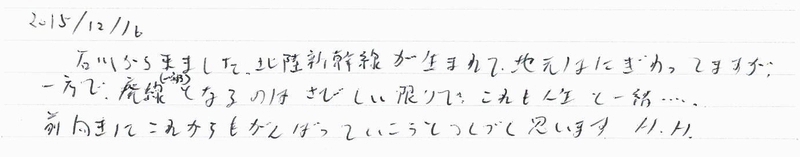 2015/12/16
石川から来ました、北陸新幹線が生まれて、地元はにぎわってますが、
一方で、廃線(一部)となるのはさびしい限りです、これも人生と一緒.....
前向きにこれからもがんばっていこうとつくづく思います H.H.